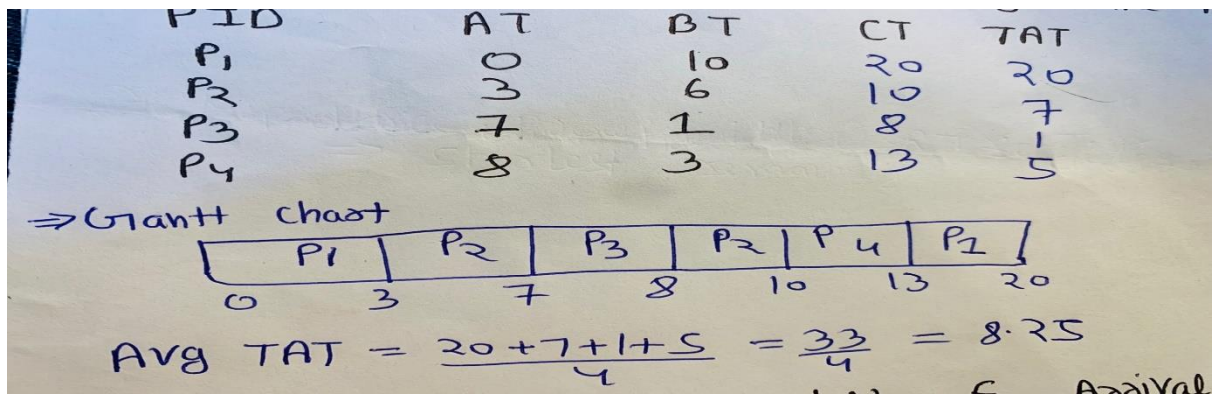 PID AT BT CT TAT
P1 0 10 20 20
P2 3 6 10 7
P3 7 1 8 1
P4 8 3 13 5
⇒ Gantt chart
P1 P2 P3 P2 P4 P1
0 3 7 8 10 13 20
Avg TAT = 20+7+1+5/4 = 33/4 = 8.25
Arrival